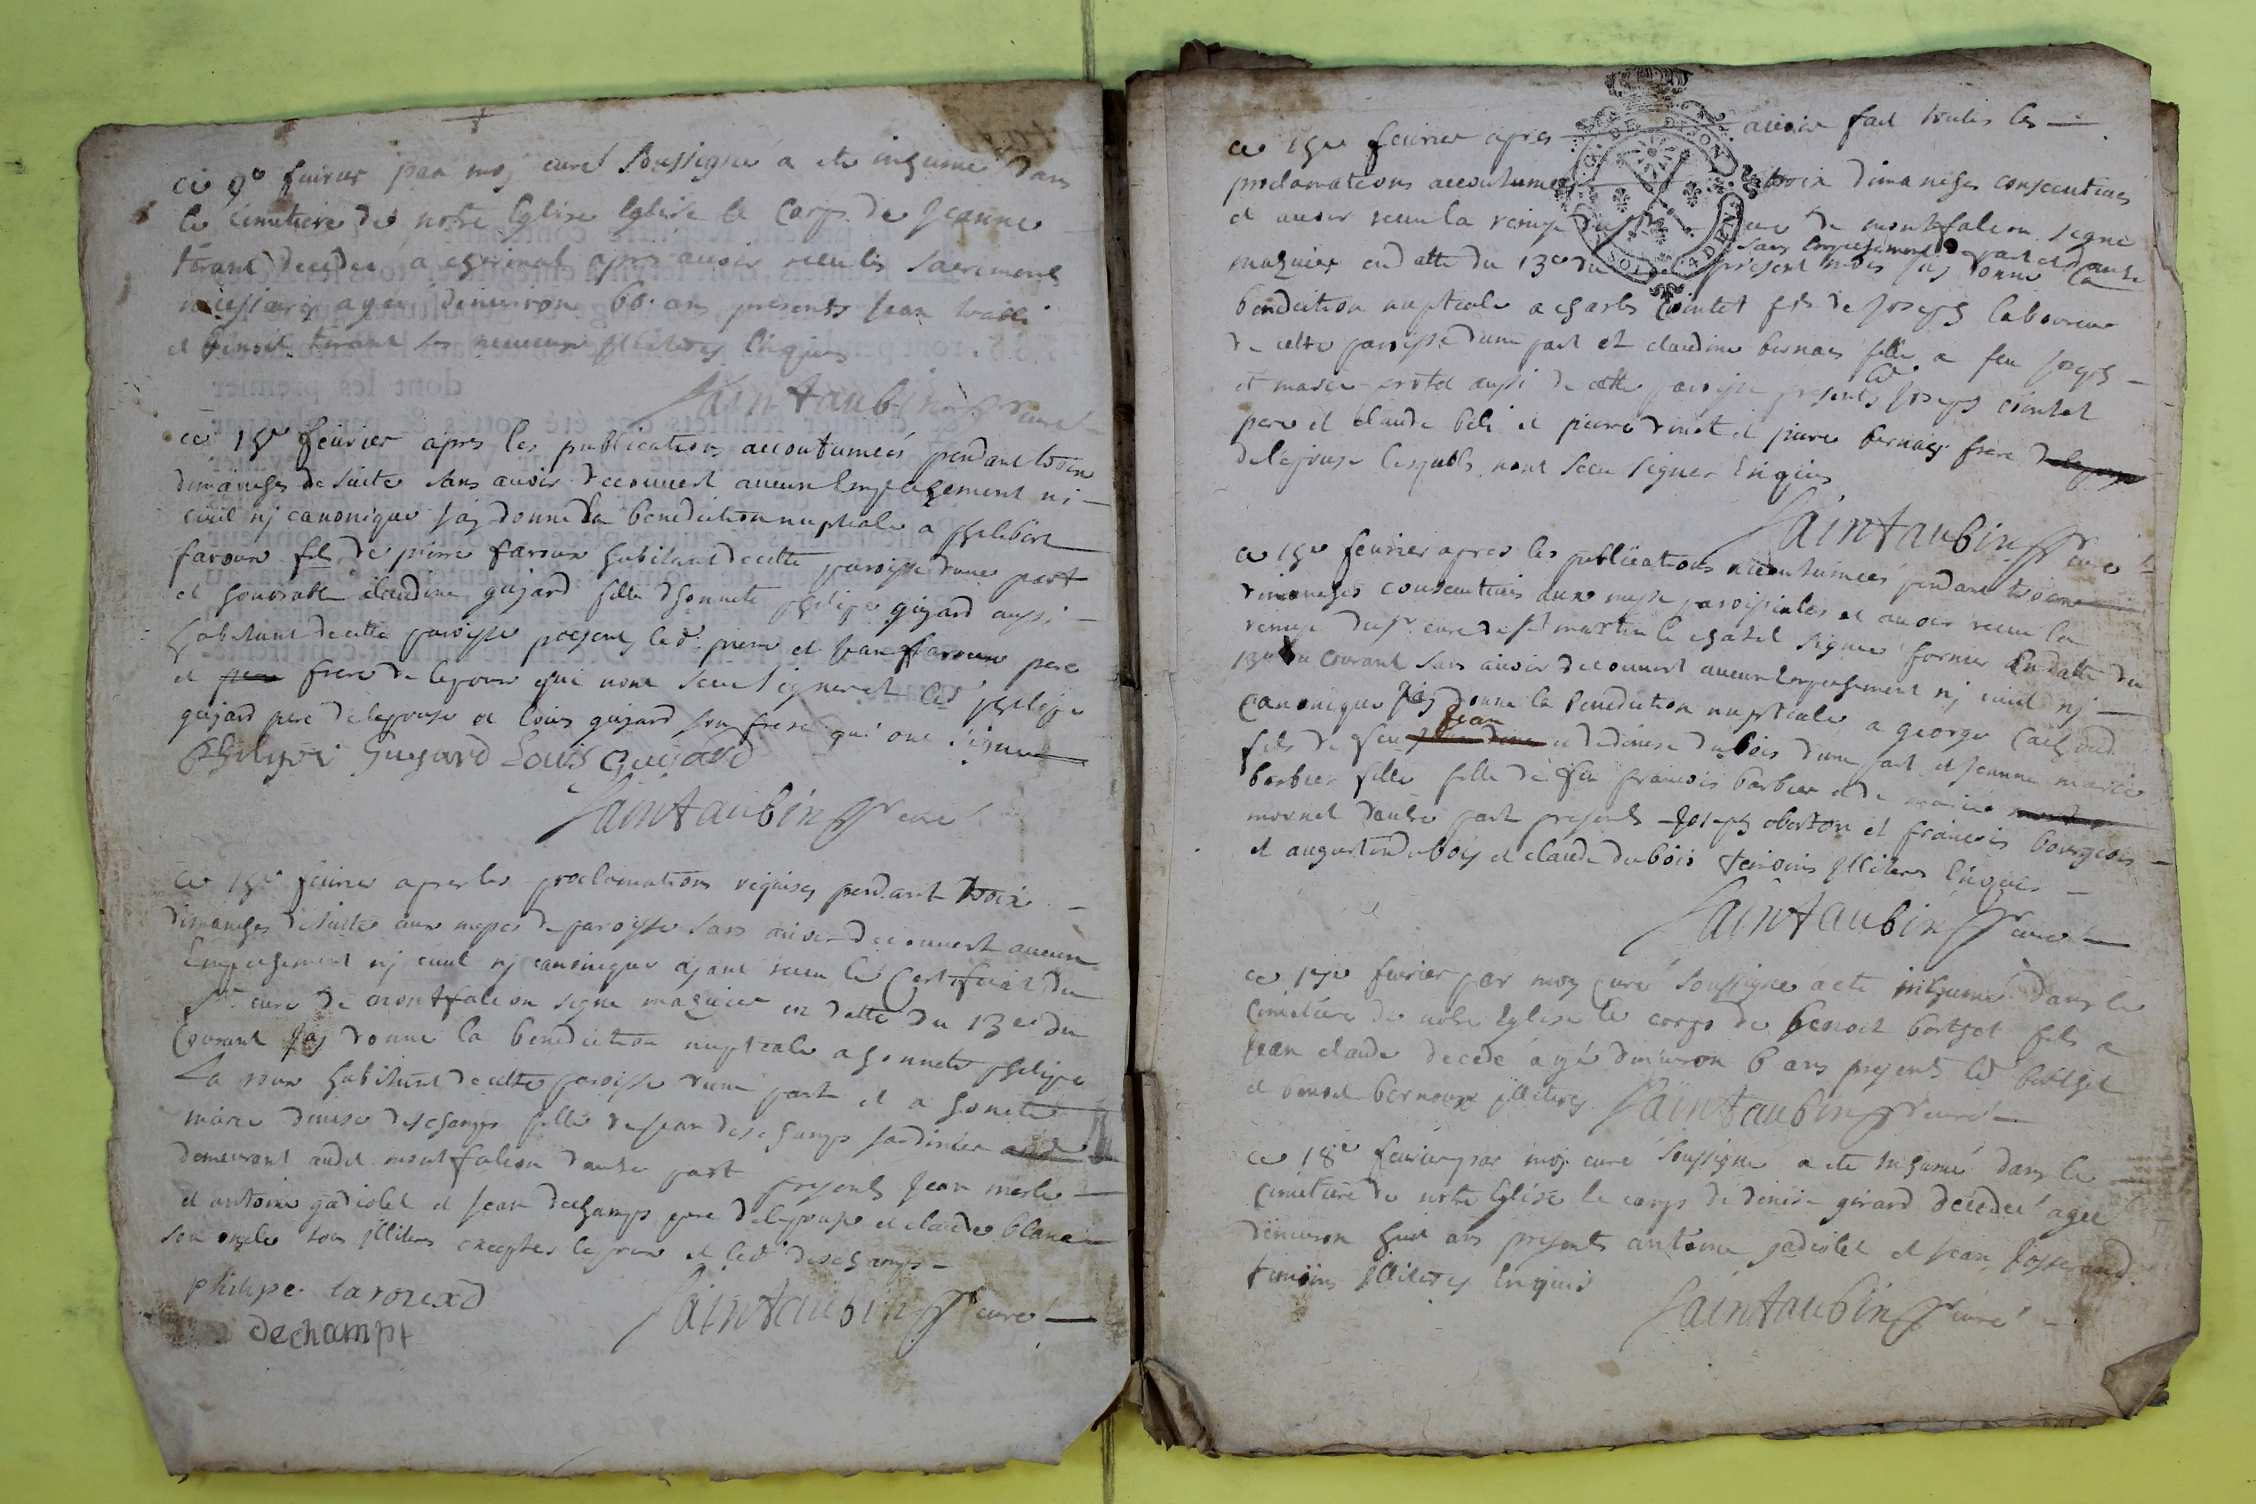 ce 9e fevrier par moy curé soussigné a ete inhumé dans
le cimetiere de notre Eglise Eglise le corps de jeanne
torant decedée a apres avoir receu les sacrements
necessaires agée denviron 60 ans presents jean
et benoit torant ses neveux illiteres Enquis
Saintaubin curé
ce 15e fevrier apres les publications accoutumées pendant trois
dimanches de suite sans avoir decouvert aucun Empechement ni
civil nj canonique jaj donné la benediction nuptiale a philibert
faroux fils de pierre faroux habitant de cette paroisse dune part
et honorable claudine gujard fille dhonnete philipe gujard aussi
habitant de cette paroisse presents led. pierre et jean faroux pere
et pere frere de lepoux qui nont sceu signer et led philipe
gujard pere de lepouse et louis gujard son frere qui ont signé
Philipe Guyard Louis Guiard
Saintaubin curé
ce 15e fevrier apres les proclamations requises pendant trois
dimanches de suite aux messes de paroisse sans avoir decouvert aucun
Empechement nj civil nj canonique ajant receu le Certificat du
Sr curé de montfalcon signé maguier en datte du 13e du
Courant jaj donné la benediction nuptiale a honnete philipe
La roux habitant de cette paroisse dune part et a honete
marie denise deschamps fille de jean deschamps jardinier
demeurant audit montfalcon dautre part presents jean merle
et antoine gadiolet et jean dechamps pere de lepouse et claude blanc
son oncle tous illiteres exceptes lepoux et led deschamps
philipe laroux
dechamps
Saintaubin curé
ce 15e fevrier apres avoir fait toutes les
proclamations accoutumées trois dimanches consecutives
et avoir receu la remise du Sr curé de montfalcon signé
sans Empechement de part et dautre
maguier en datte du 13e du present mois jaj donné la
benediction nuptiale a charles Cointet fils de joseph laboureur
de cette paroisse dune part et claudine bernais fille a feu joseph
et marie aussi de cette paroisse presents led joseph cointet
pere et claude et pierre et piere bernais frere
de lepouse lesquels nont sceu signer Enquis
Saintaubin curé
ce 15e fevrier apres les publications accoutumées pendant trois
dimanches consecutives aux messe paroissiales et avoir receu la
remise du sr curé de st martin le chatel signée fornier En datte du
13e du courant sans avoir decouvert aucun Empechement nj civil nj
Canonique jaj donné la benediction nuptiale a george
jean
fils de feu et de denise dubois dune part et jeanne marie
barbier fille fille de feu francois barbier et de marie
mornet dautre part presents joseph oberton et francois bourgeois
et augustin dubois et claude dubois temoins illiteres Enquis
Saintaubin curé
ce 17e fevrier par moy curé soussigné a ete inhumé dans le
Cimetiere de notre Eglise le corps de benoit berthet fils a
jean claude decedé agé denviron 6 ans presents led berthet
et benoit bernoux illiteres Saintaubin curé
ce 18e fevrier par moy curé soussigné a ete inhumé dans le
cimetiere de notre Eglise le corps de denise girard decedée agée
denviron huit ans presents antoine gadiolet et jean josserand
temoins illiteres Enquis
Saintaubin curé